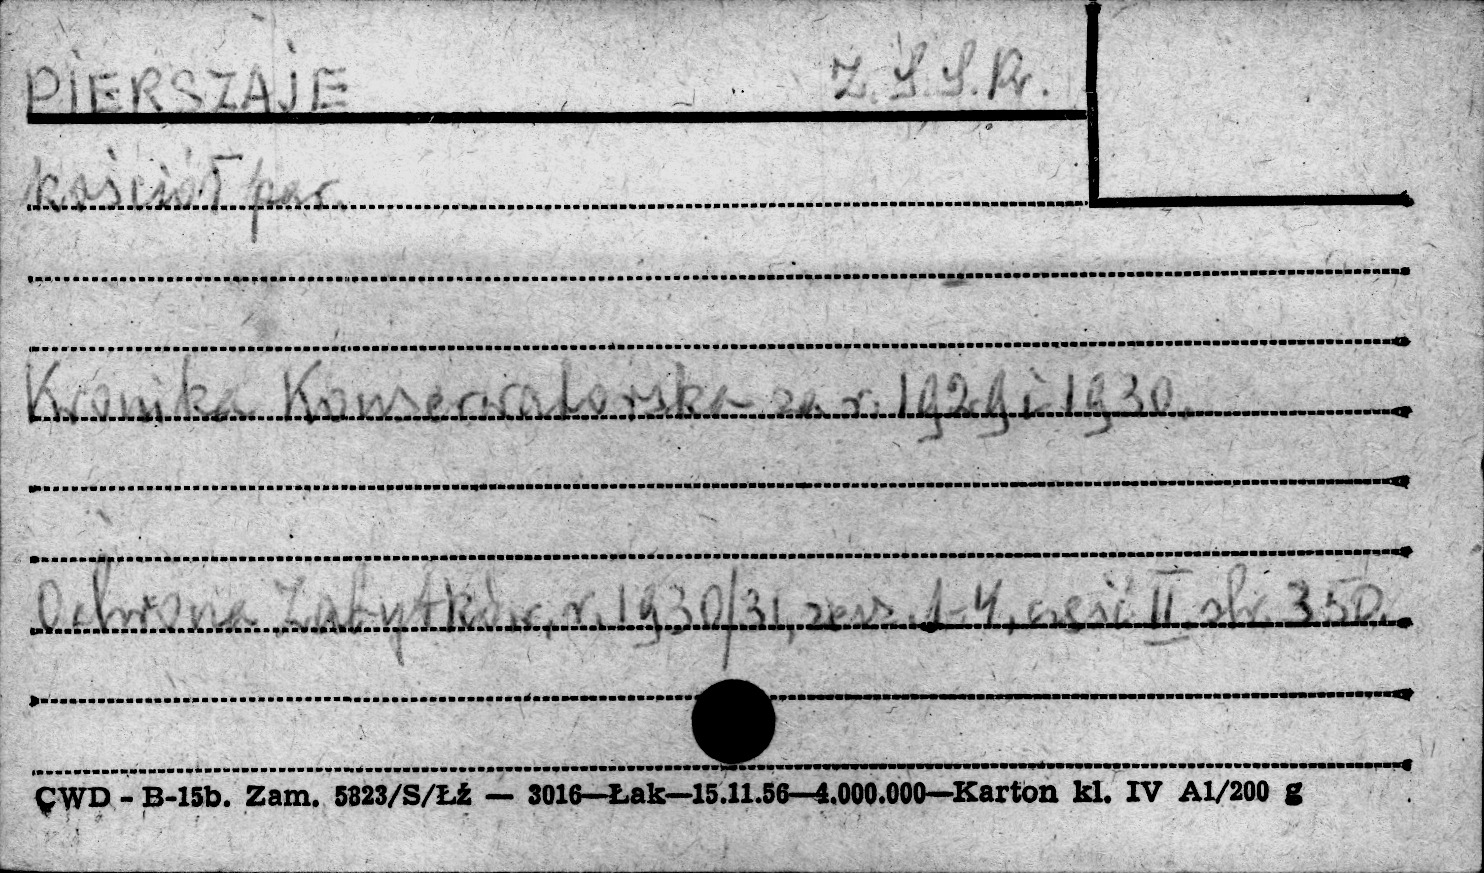 PIERSZAJE Z.S.S.R.
kościół par.
Kronika Konserwatorska za r. 1929 i 1930.
Ochrona Zabytków, r. 1930/31, zesz. 1-4, część II. str. 350.
CWD - B-15b. Zam. 5823/S/Łź — 3016—Łak—15.11.56—4.000.000—Karton kl. IV A1/200 g